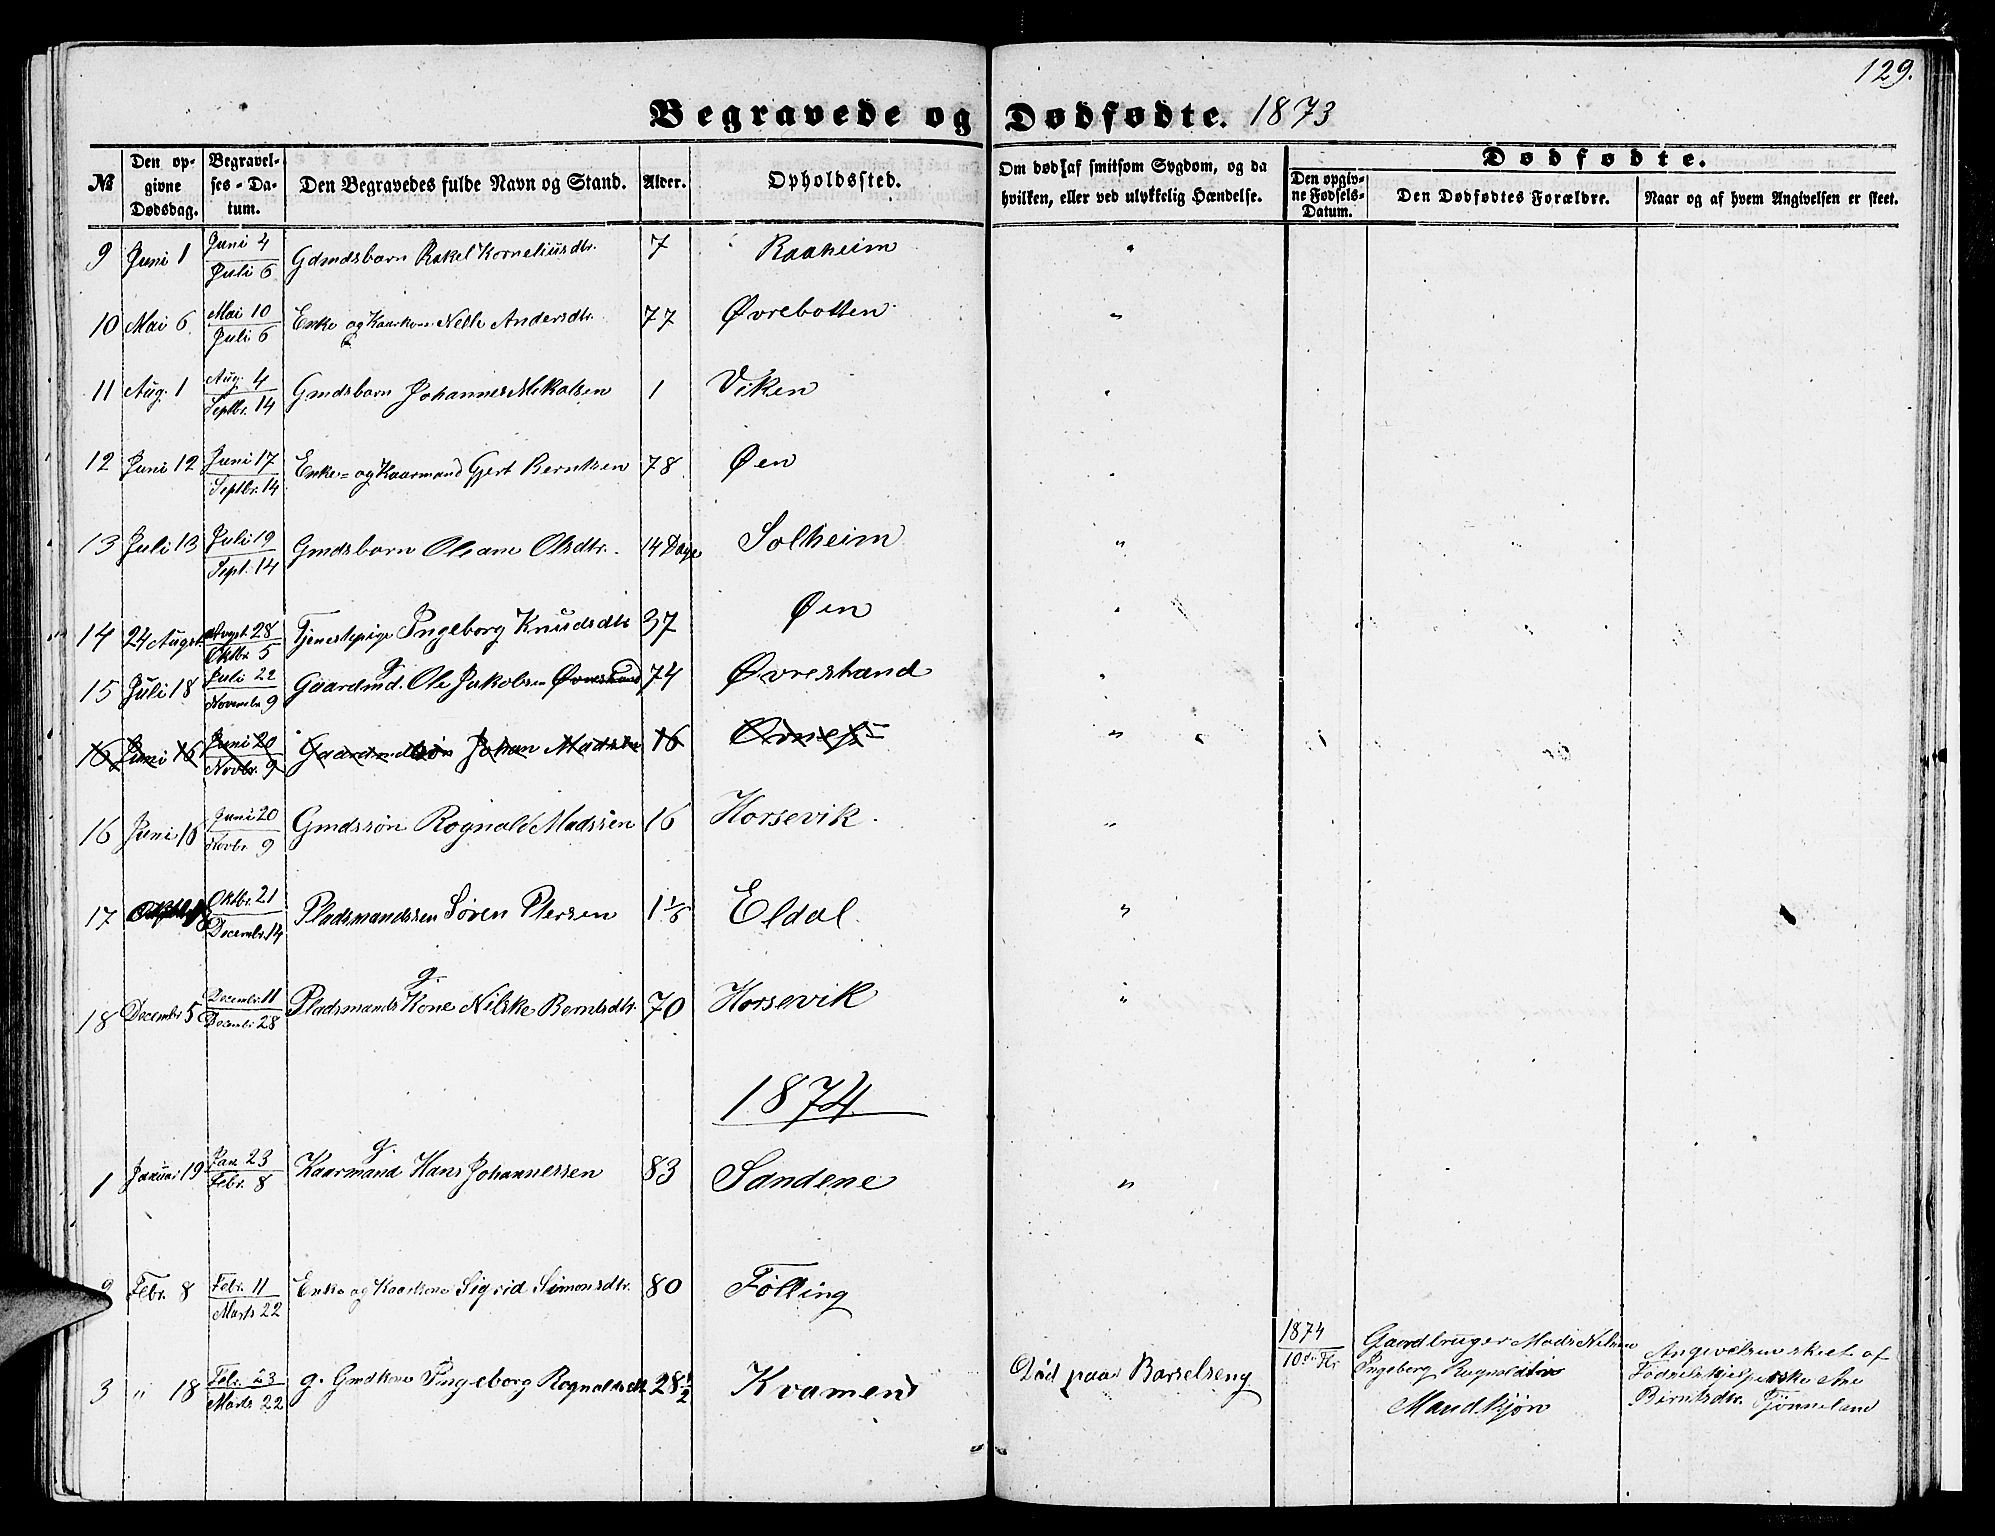 129.
Begravede og Dødfødte. 1873
№ Den opgivne Dødsdag. Begravelses-Datum. Den Begravedes fulde Navn og Stand. Alder. Opholdssted. Om død af smitsom Sygdom, og da hvilken, eller ved ulykkelig Hændelse. Dødfødte. Den opgivne Fødsels-Datum. Den Dødfødtes Forældre. Naar og af hvem Angivelsen er skeet.
9 Juni 1 Juni 4 / Juli 6 Gdmdsbarn Rakel Korneliusdtr. 7 Raaheim "
10 Mai 6 Mai 10 / Juli 6 Enke og Kaarkone Andersdtr. 77 Øvrebotten "
11 Aug. 1 Aug. 4 / Septbr. 14 Gmdsbarn Johannes Nikolsen 1 Viken "
12 Juni 12 Juni 17 / Septbr. 14 Enke- og Kaarmand Gjert Berntsen 78 Øen "
13 Juli 13 Juli 19 / Sept. 14 Gmdsbarn Olsdtr. 14 Dage Solheim "
14 24 August 28 / Oktbr. 5 Tjenestepige Ingeborg Knudsdtr 37 Øen "
15 Juli 18 Juli 22 / Novembr. 9 Gaardmd. g. Ole Jakobsen Øvrestrand 74 Øvrestrand "
16 Juni 16 Juni 20 / Novbr. 9 Gaardmdssøn Johan Madsen 16 Ørnes "
16 Juni 16 Juni 20 / Novbr. 9 Gmdssøn Rognald Madssen 16 Horsevik "
17 Oktbr. 21 / Decembr. 14 Pladsmandssøn Søren Petersen Eldal "
18 Decembr 5 Decembr. 11 / Decembr 28 Pladsmands g. Kone Nilske Berntsdtr. 70 Horsevik "
1874
1 Januar 19 Jan. 23 / Febr. 8 Kaarmand g. Hans Johannessen 83 Sandene "
2 Febr. 8 Febr. 11 / Marts 22 Enke og Kaarkone Sigrid Simonsdtr. 80 Følling
3 " 18 Feb. 23 / Marts 22 g. Gmdkone Ingeborg Rognaldsdtr 28½ Kvamen Død paa Barselseng 1874 / 10de Gaardbruger Mads Nilsen
Ingeborg Rognaldsdtrs
Mandkjøn
Angivelsen skeet af
Fødselshjelperske Ane
Berntsdtr. Tjønneland